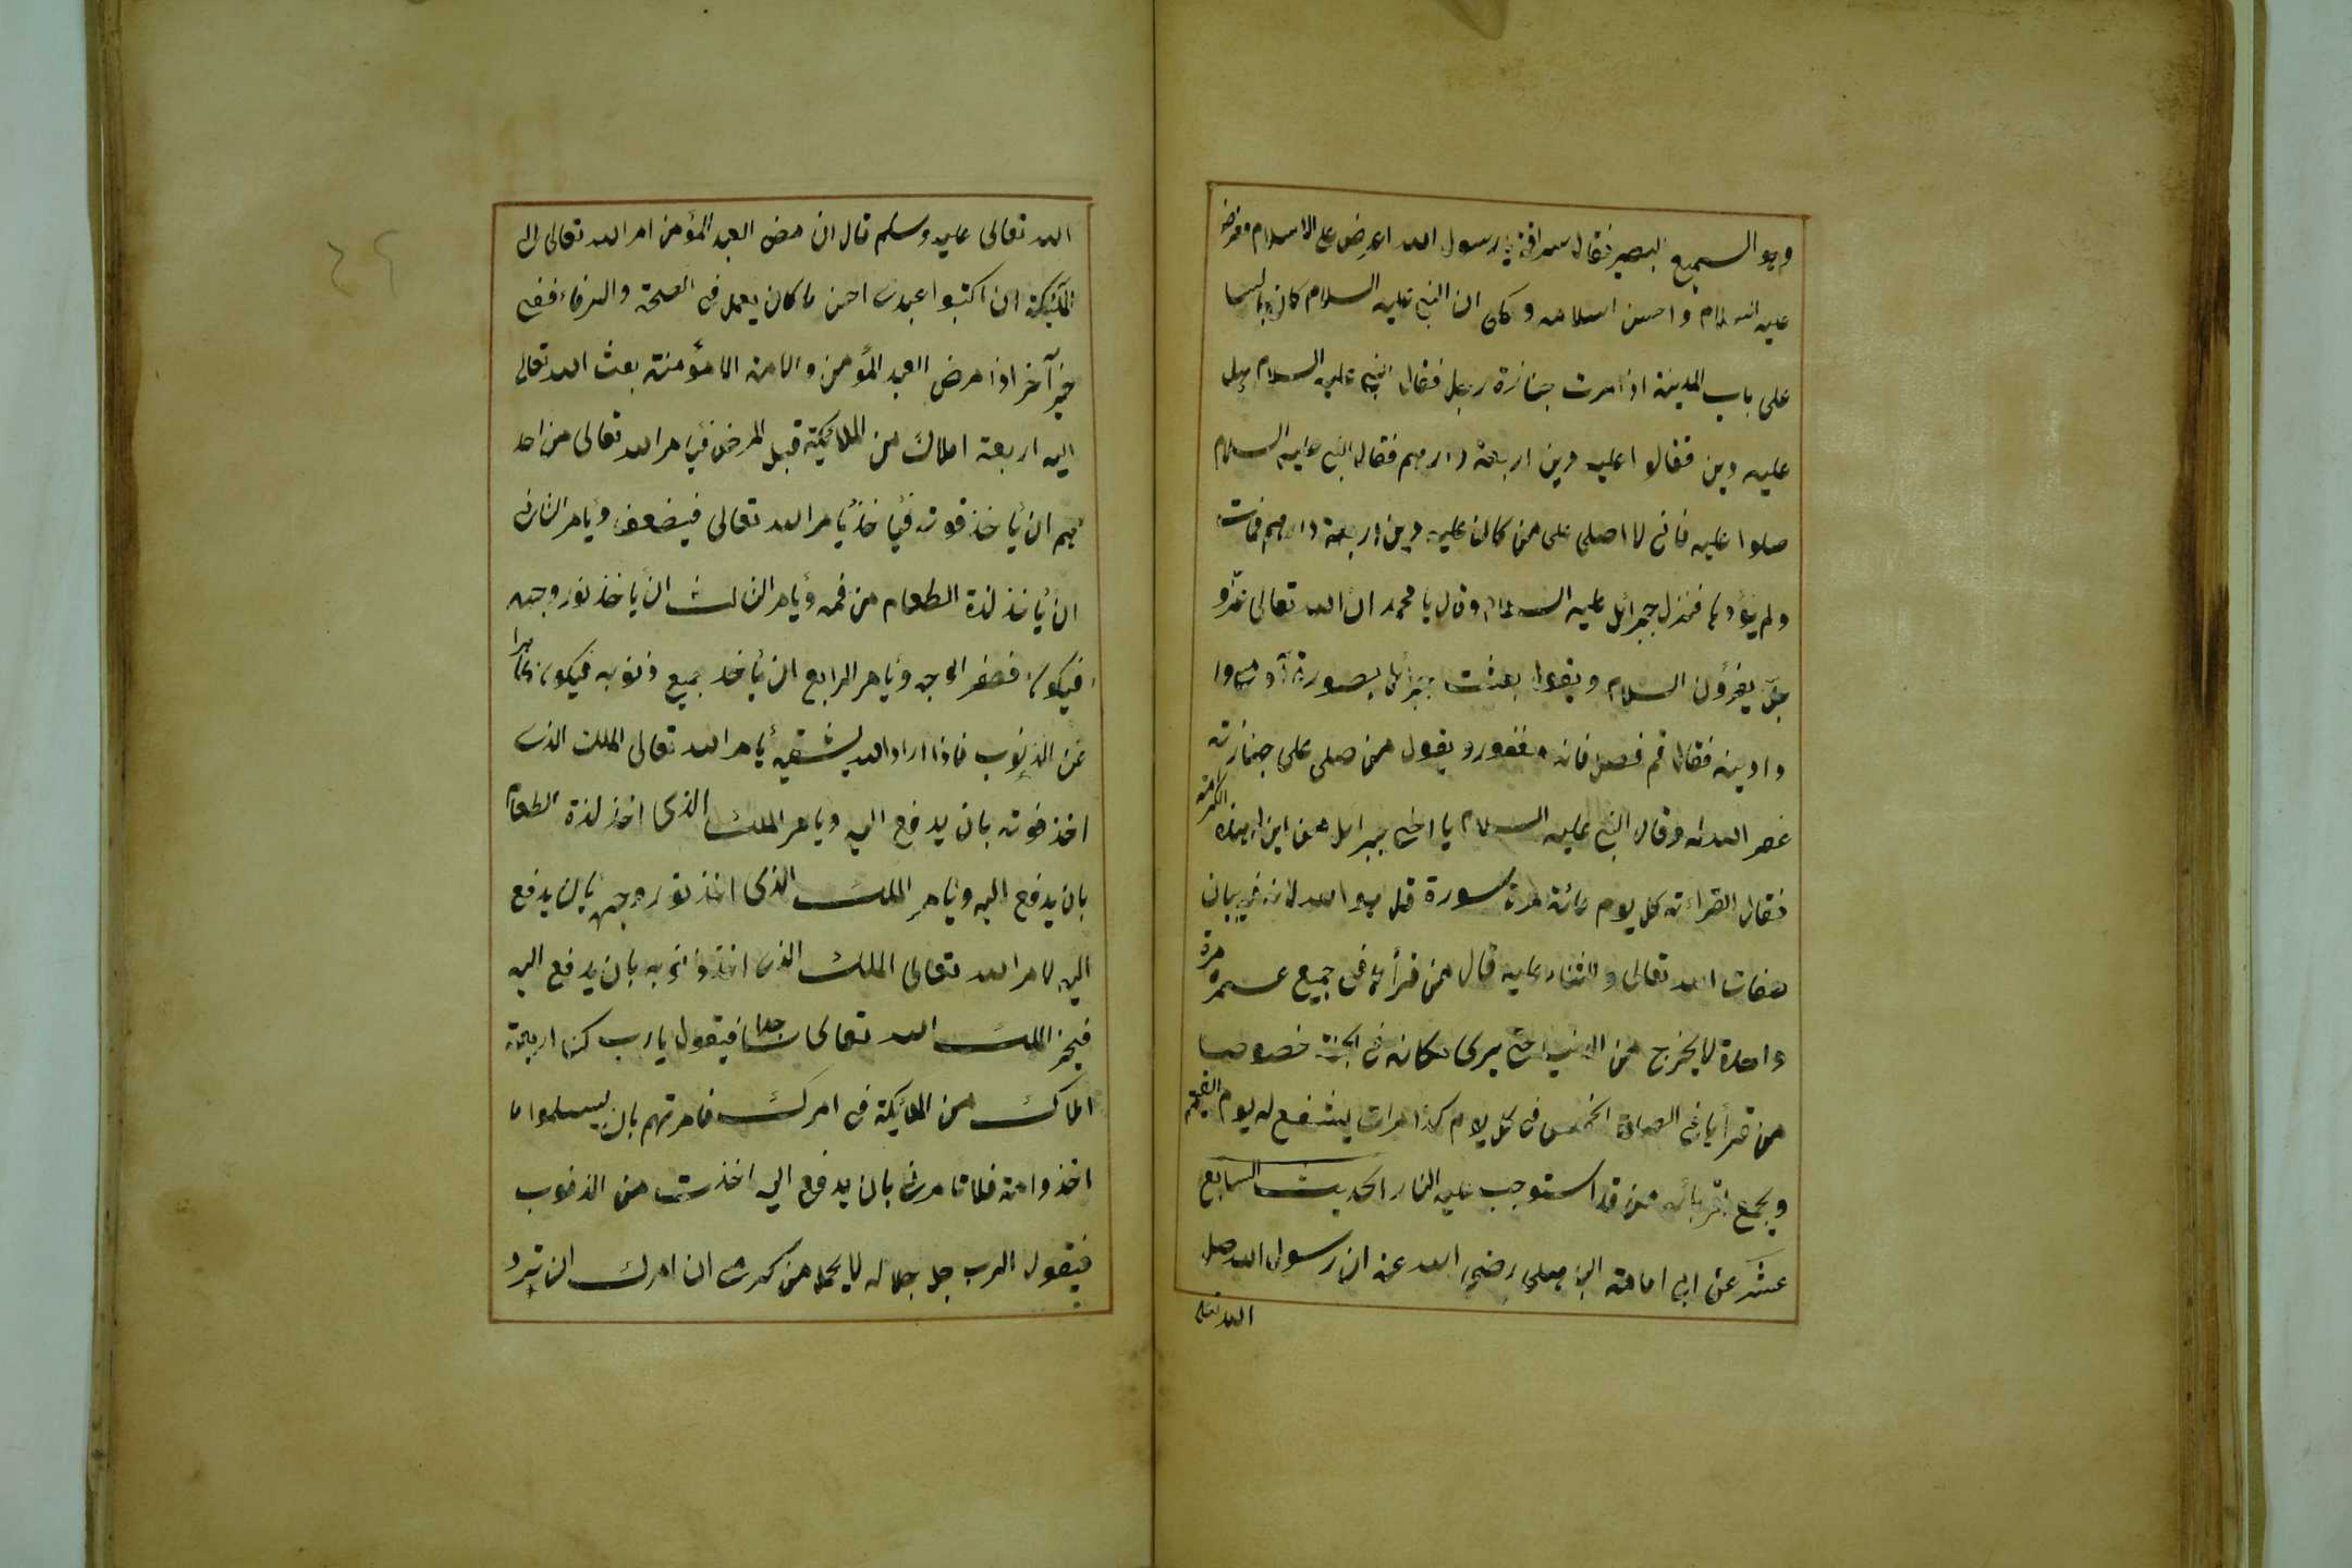 وهو السميع البصير فقال سراقة يا رسول الله اعرض على الاسلام فعرض
عليه السلام واحسن اسلامه وحكى ان النبي عليه السلام كان جالسا
على باب المدينة اذا مرت جنازة رجل فقال النبي عليه السلام هل
عليه دين فقالوا عليه دين اربعة دارهم فقال النبي عليه السلام
صلوا عليه فانى لا اصلى على من كان عليه دين اربعة دارهم فمات
ولم يؤدها فنزل جبرائل عليه السلام وقال يا محمد ان الله تعالى عز و
جل يقرؤن السلام ويقول بعثت جبرائل بصورة آدمى وا
دا دينه فقال قم فصل فانه مغفور ويقول من صلى على جنازته
غفر الله له وقال النبي عليه السلام يا اخى جبرائل من اين له هذه الكرامة
فقال القراءته كل يوم مائة مرة سورة قل هو الله لانه فى بيان
صفات الله تعالى والثناء عليه قال من قرأها فى جميع عمره مرة
واحدة لا يخرج من الدنيا حتى يرى مكانه فى الجنة خصوصا
من قرأها فى الصلاة الخمس فى كل يوم كذا مرات يشفع له يوم القيمة
ويجمع اقربائه من قد استوجب عليه النار الحديث السابع
عشر عن ابى امامة الباهلى رضى الله عنه ان رسول الله صلى
الله تعالى
الله تعالى عليه وسلم قال ان مرض العبد المؤمن امر الله تعالى الى
الملئكة ان اكتبوا عبدى احسن ما كان يعمل فى الصحة والرخاء ففى
خبر آخر اذا مرض العبد المؤمن والامة المؤمنة بعث الله تعالى
اليه اربعة املاك من الملائكة قبل المرض فيأمر الله تعالى من احد
هم ان يأخذ قوته فيأخذ يأمر الله تعالى فيضعف ويأمر الثانى
ان يأخذ لذة الطعام من فمه ويأمر الثالث ان يأخذ نور وجهه
فيكون مصفر الوجه ويأمر الرابع ان يأخذ جميع ذنوبه فيكون طاهرا
من الذنوب فاذا اراد الله يشفيه يأمر الله تعالى الملك الذى
اخذ قوته بان يدفع اليه ويأمر الملك الذى اخذ لذة الطعام
بان يدفع اليه ويأمر الملك الذى اخذ نور وجهه بان يدفع
اليه لا مر الله تعالى الملك الذى اخذ ذنوبه بان يدفع اليه
فيخر الملك الله تعالى ساجدا فيقول يا رب كنا اربعة
املاك من الملائكة فى امرك فامرتهم بان يسلموا ما
اخذوا منه فلا تأمرنى بان يدفع اليه اخذت من الذنوب
فيقول الرب جل جلاله لا يحمل من كرمى ان امرك ان ترد